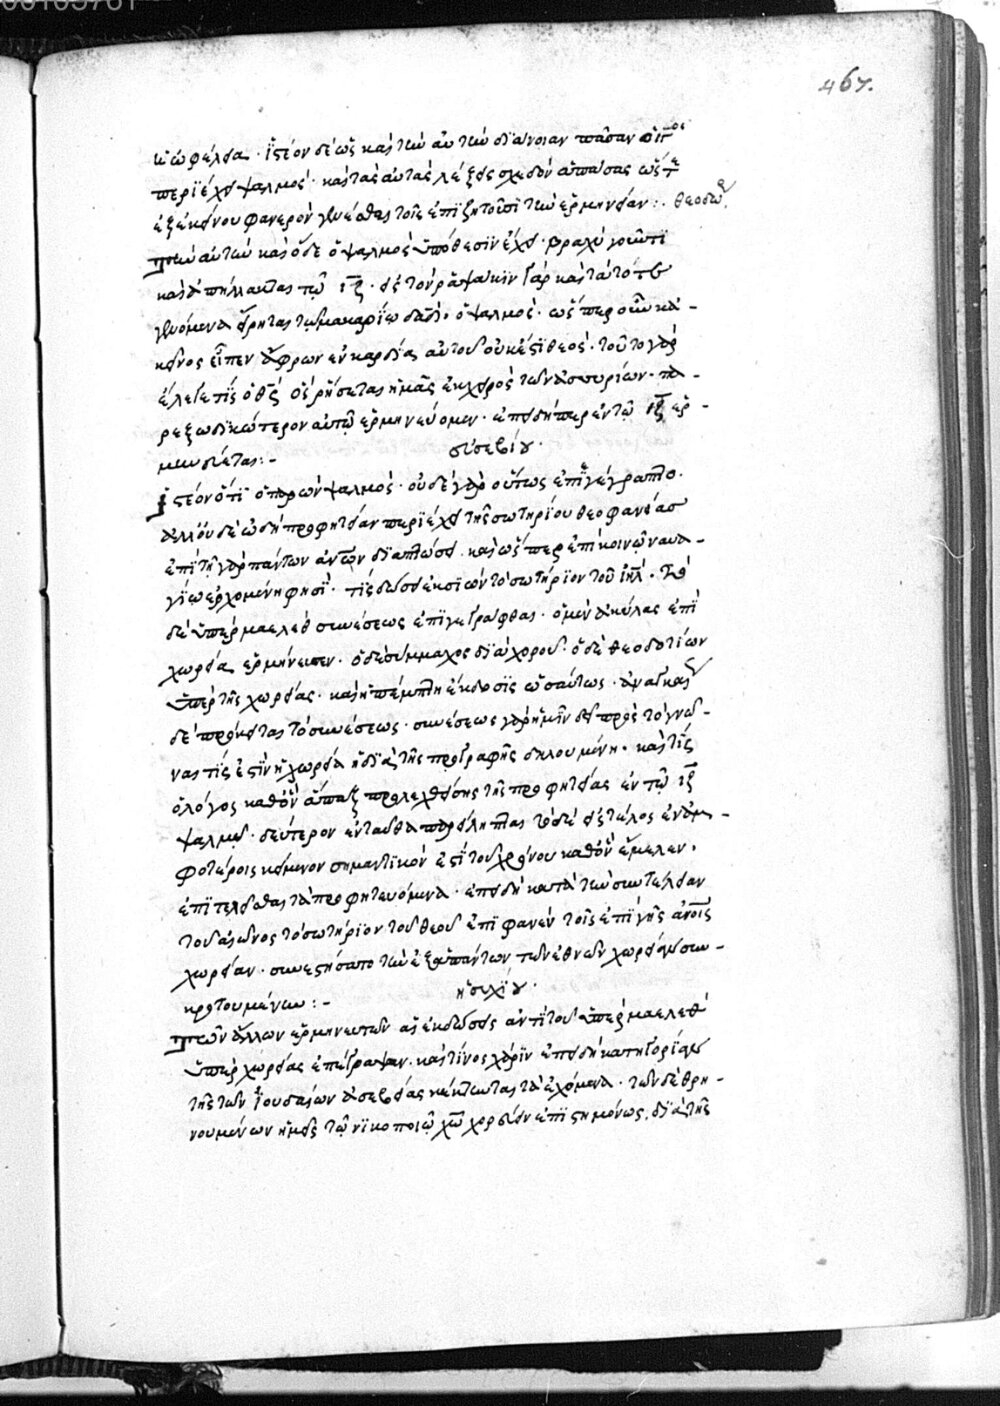 00105761
467.
κ ὠφέλεια · ἰστέον δὲ ὡς καὶ τὴν αὐτὴν διάνοιαν πᾶσαν οὗτος
περιέχει ψαλμός · καὶ τὰς αὐτὰς λέξεις σχεδὸν ἁπάσας ὥστε
ἐξ ἐκείνου φανερὸν γενέσθαι τοῖς ἐπιζητοῦσι τὴν ἑρμηνείαν :· θεοδω
τὴν αὐτὴν καὶ ὅδε ὁ ψαλμὸς ὑπόθεσιν ἔχει · βραχὺ γοῦν τι
καὶ ἀπήλλακται τῷ ιγ · εἰς τὸν ῥαψάκην γὰρ καὶ τὰ τότε
γενόμενα εἴρηται τῷ μακαρίῳ δαδ ὁ ψαλμός · ὥσπερ οὖν κἀ-
κεῖνος εἶπεν ἄφρων ἐν καρδίᾳ αὐτοῦ οὐκ ἔστι θεός · τοῦτο γὰρ
ἔλεγε τίς ὁ θς ὃς ῥύσεται ἡμᾶς ἐκ χειρὸς τῶν ἀσσυρίων · πα-
ρεξωδικώτερον αὐτῷ ἑρμηνεύομεν · ἐπειδήπερ ἐν τῷ ιγ ἑρ-
μηνεύεται :-
εὐσεβίου ·
ἰστέον ὅτι ὁ παρὼν ψαλμὸς · οὐδὲ γὰρ οὕτως ἐπιγέγραπται ·
ἀλλ' οὐδὲ ᾠδὴ προφητείαν περιέχει τῆς σωτηρίου θεοφανείας
ἐπὶ τῇ γὰρ πάντων ἀνων διαπτώσει · καὶ ὥσπερ ἐπὶ κοινῷ ναυα-
γίῳ ἐρχομένη φησί · τίς δώσει ἐκ σιὼν τὸ σωτήριον τοῦ ιηλ · τὸ
δὲ ὑπὲρ μαελεθ συνέσεως ἐπιγεγράφθαι · ὁ μὲν ἀκύλας ἐπὶ
χωρείᾳ ἑρμήνευσεν · ὁ δὲ σύμμαχος διὰ χοροῦ · ὁ δὲ θεοδοτίων
ὑπὲρ τῆς χωρείας · καὶ ἡ πέμπτη ἔκδοσις ὡσαύτως · ἀναγκαί
δὲ πρόκειται τὸ συνέσεως · συνέσεως γὰρ ἡμῖν δεῖ πρὸς τὸ γνῶ-
ναι τίς ἐστὶν ἡ χωρεία ἡ διὰ τῆς προγραφῆς δηλουμένη · καὶ τίς
ὁ λόγος καθ' ὃν ἅπαξ προλεχθείσης τῆς προφητείας ἐν τῷ ιγ
ψαλμῷ · δεύτερον ἐνταῦθα παρείληπται τὸ δὲ εἰς τέλος ἐν ἀμ-
φοτέροις κείμενον σημαντικὸν ἐστὶ τοῦ χρόνου καθ' ὃν ἔμελεν ·
ἐπιτελεῖσθαι τὰ προφητευόμενα · ἐπειδὴ κατὰ τὴν συντέλειαν
τοῦ αἰῶνος τὸ σωτήριον τοῦ θεοῦ ἐπιφανὲν τοῖς ἐπὶ γῆς ἀνοις
χωρείαν · συνεστήσατο τὴν ἐξ ἁπάντων τῶν ἐθνῶν χωρείαν συν-
κροτουμένην :-
ἡσυχίου ·
τῶν ἄλλων ἑρμηνευτῶν αἱ ἐκδόσεις ἀντὶ τοῦ ὑπὲρ μαελεθ
ὑπὲρ χωρείας ἐπέγραψαν · καὶ τίνος χάριν ἐπειδὴ κατηγορίαν
τῆς τῶν ἰουδαίων ἀσεβείας κέκτωται τὰ ἐχόμενα · τῶν δὲ θρη-
νουμένων ἡμεῖς τῷ νικοποιῷ χῶ χορεύειν ἐπιστημόνως. διὰ τῆς